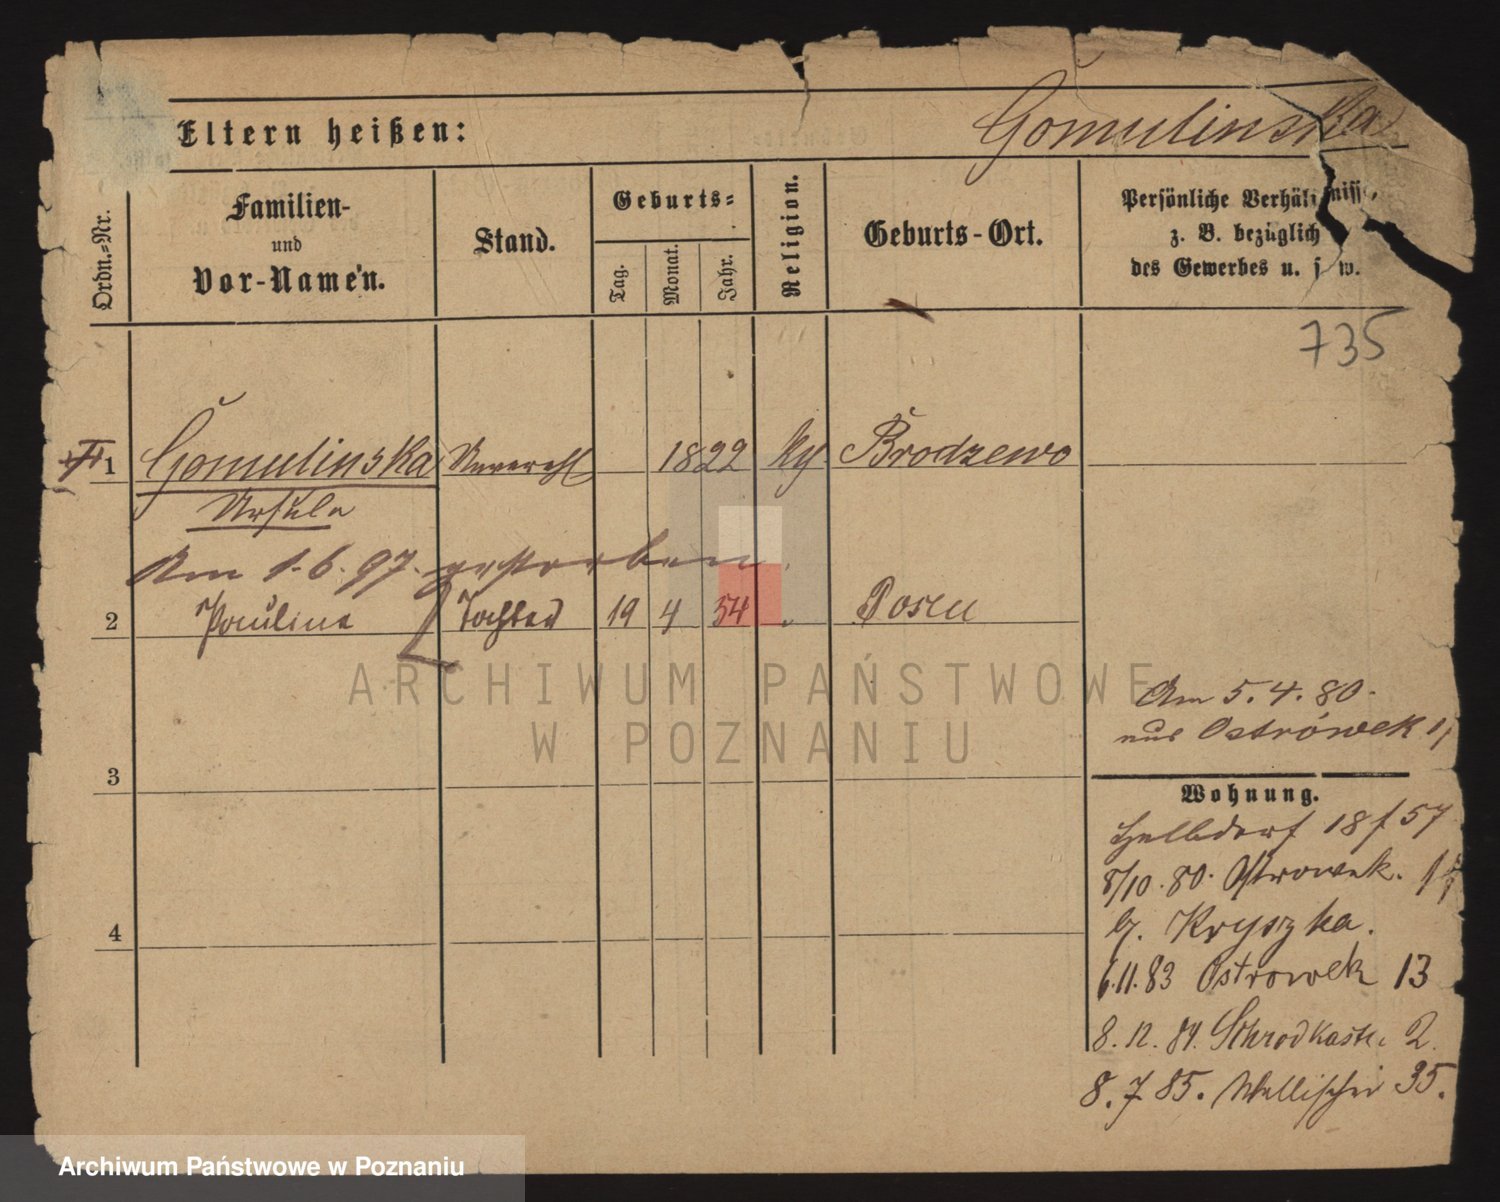 Eltern heißen:
Gomulinska
Ordn.-Nr.
Familien-
und
Vor-Namen.
Stand.
Geburts-
Tag.
Monat.
Jahr.
Religion.
Geburts-Ort.
Persönliche Verhältnisse,
z. B. bezüglich
des Gewerbes u. s. w.
735
1 Gomulinska Unverehl 1822 Brodzewo
Ursula
Am 1.6.97. gestorben.
2 Pauline Tochter 19 4 54 Posen
ARCHIWUM PAŃSTWOWE
W POZNANIU
Am 5.4.80.
aus Ostrówek
3
Wohnung.
18/57
8/10.80. Ostrowek.
b. Kryszka.
4
6.11.83 Ostrowek 13
8.12.84. Schrodkastr. 2.
8.7.85. Wallischei 35.
Archiwum Państwowe w Poznaniu